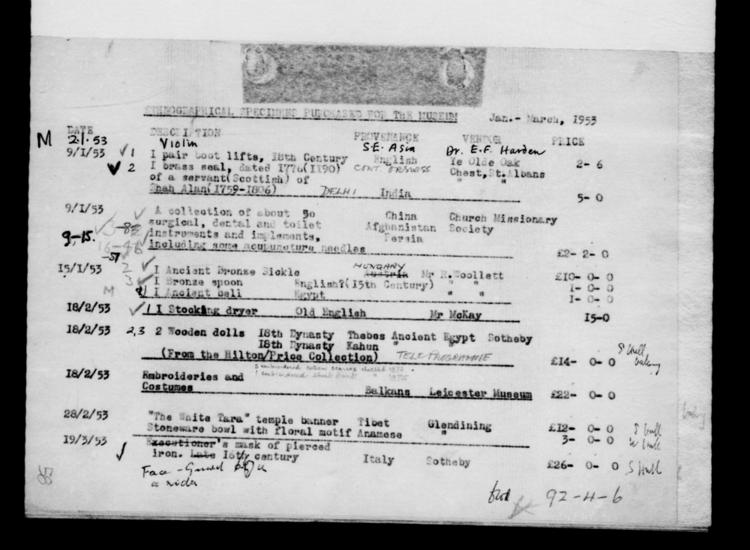 ETHNOGRAPHICAL SPECIMENS PURCHASED FOR THE MUSEUM Jan.- March, 1953
DATE DESCRIPTION PROVENANCE VENDOR PRICE
M 2.1.53 Violin S.E. Asia Dr. E.F. Harden
9/1/53 1 I pair boot lifts, 18th Century English Ye Olde Oak 2- 6
2 I brass seal, dated 1776(1190) Chest, St.Albans
of a servant(Scottish) of " "
Shah Alan(1759-1806) DELHI India 5- 0
9/1/53 A collection of about 50 China Church Missionary
surgical, dental and toilet Afghanistan Society
9-15. instruments and implements, Persia
including some acupuncture needles £2- 2- 0
HUNGARY
15/1/53 2 I Ancient Bronze Sickle Austria Mr R.Woollett £10- 0- 0
3 I Bronze spoon English?(15th Century) " " 1- 0- 0
M I Ancient celt Egypt " " 1- 0- 0
18/2/53 1 I Stocking dryer Old English Mr McKay 15-0
18/2/53 2,3 2 Wooden dolls 18th Dynasty Thebes Ancient Egypt Sotheby
18th Dynasty Kahun "
(From the Hilton/Price Collection) TELE PROGRAMME £14- 0- 0
18/2/53 Embroideries and
Costumes Balkans Leicester Museum £22- 0- 0
28/2/53 "The White Tara" temple banner Tibet Glendining £12- 0- 0
Stoneware bowl with floral motif Anamese " 3- 0- 0
19/3/53 Executioner's mask of pierced
iron. Late 16th century Italy Sotheby £26- 0- 0 S Hall
Face-Guard of a
a rider
92-4-6